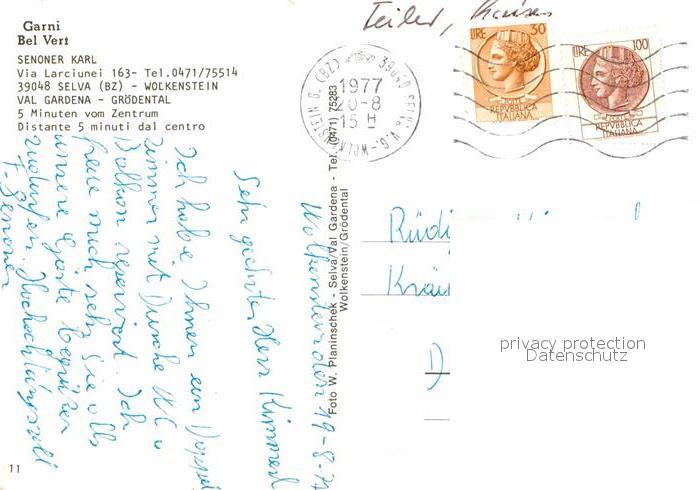 Garni
Bel Vert
SENONER KARL
Via Larciunei 163- Tel.0471/75514
39048 SELVA (BZ) - WOLKENSTEIN
VAL GARDENA - GRÖDENTAL
5 Minuten vom Zentrum
Distante 5 minuti dal centro
Teiler,
1977
20-8
15 H
LIRE 30
POSTE
REPVBBLICA
ITALIANA
LIRE 100
POSTE
REPVBBLICA
ITALIANA
Wolkenstein den 19-8-77
Sehr geehrter Herr Kimmerl
Ich habe Ihnen ein Doppel
zimmer mit Dusche WC u
Balkon reserviert. Ich
freue mich sehr Sie als
unsere Gäste begrüßen
zu dürfen. Hochachtungsvoll
F. Senoner
Foto W. Planinschek - Selva/Val Gardena - Tel. (0471) 75283
Wolkenstein/Grödental
Rüdi
D
privacy protection
Datenschutz
11